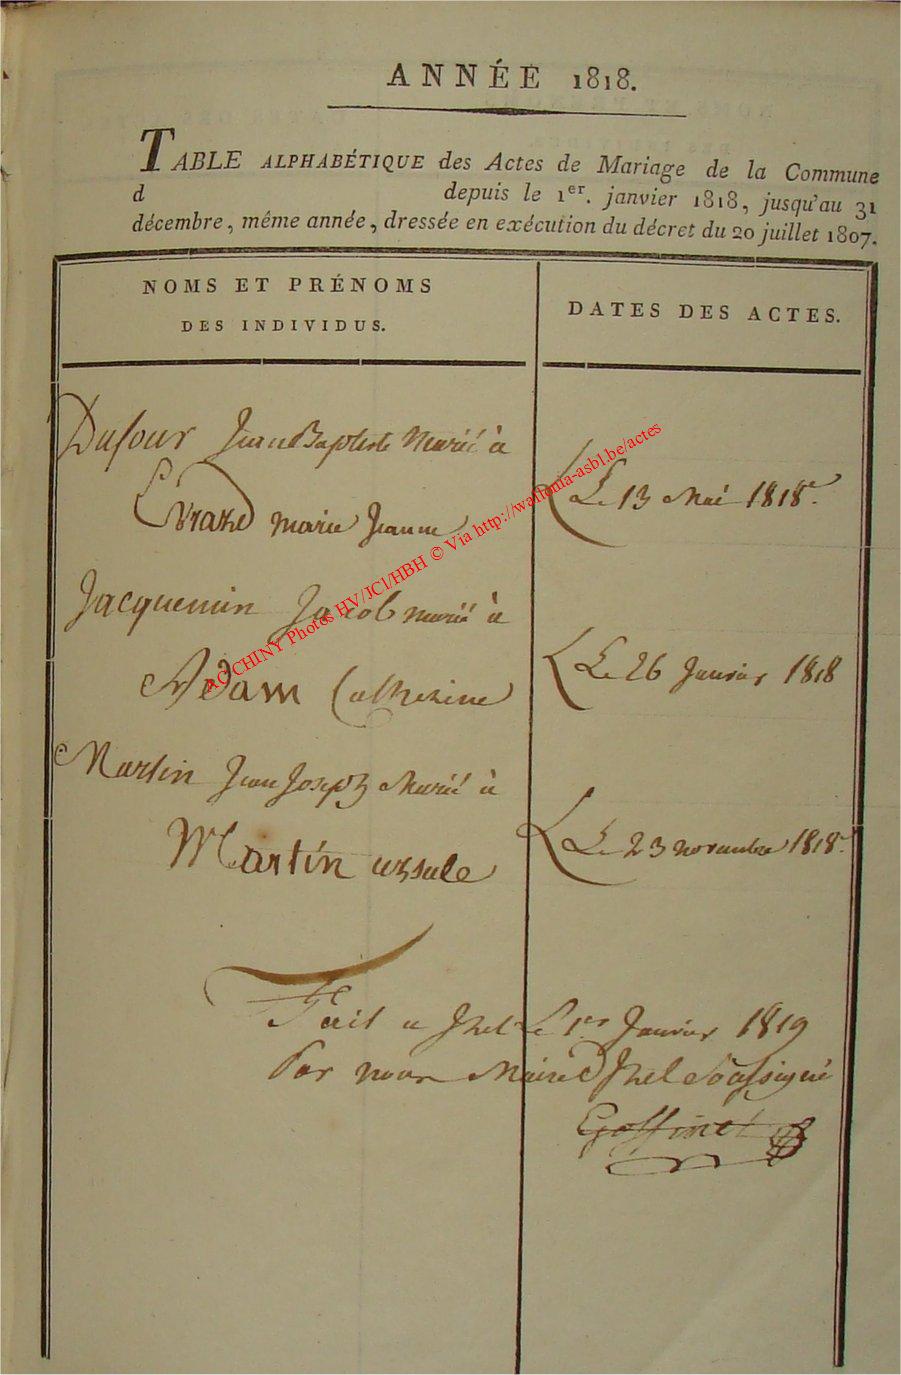 ANNÉE 1818.
TABLE ALPHABÉTIQUE des Actes de Mariage de la Commune
d depuis le 1er. janvier 1818, jusqu'au 31
décembre, même année, dressée en exécution du décret du 20 juillet 1807.
NOMS ET PRÉNOMS
DES INDIVIDUS.
DATES DES ACTES.
Dufour Jean Baptiste Marié à
Evrard marie Jeanne
Le 13 Mai 1818
Jacquemin Jacob marié à
Adam Catherine
Le 26 Janvier 1818
Martin Jean Joseph Marié à
Martin ursule
Le 23 novembre 1818
Fait a Izel Le 1er Janvier 1819
Par nous Maire D'Izel Soussigné
Goffinet
AC CHINY Photos HV/JCl/HBH © Via http://wallonia-asbl.be/actes